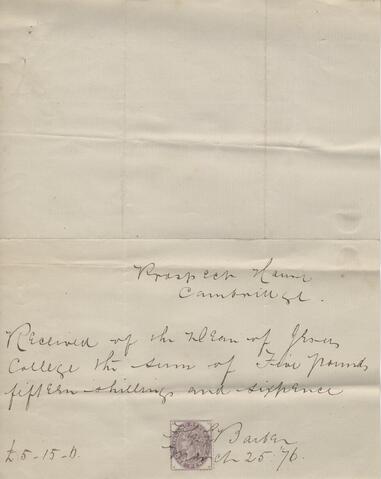 Prospect House
Cambridge.
Received of the Dean of Jesus
College the sum of Five pounds
fifteen shillings and sixpence
Barker
£5-15-0. 25 '76.